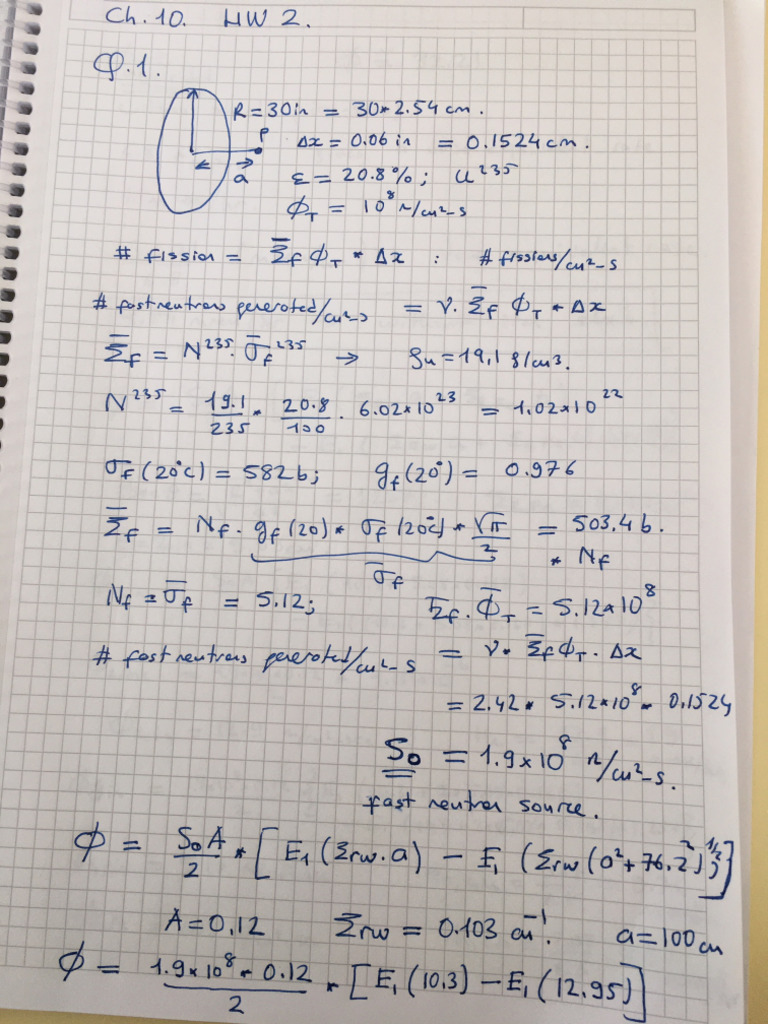 Ch. 10. HW 2.
Q.1.
R = 30in = 30*2.54 cm.
P
Δx = 0.06 in = 0.1524 cm.
a
ε = 20.8%; U²³⁵
ϕ_T = 10⁸ n/cm²-s
# fission = Σ̄_f ϕ_T * Δx : # fissions/cm²-s
# fast neutrons generated/cm²-s = ν. Σ̄_f ϕ_T * Δx
Σ̄_f = N²³⁵. σ̄_f²³⁵ → ρ_u = 19,1 g/cm3.
N²³⁵ = 19.1/235 * 20.8/100 . 6.02x10²³ = 1.02x10²²
σ_f (20°c) = 582 b; g_f (20°) = 0.976
Σ̄_f = N_f . g_f (20) * σ_f (20°c) * √π/2 = 503.4 b.
* N_f
σ̄_f
N_f * σ̄_f = 5.12; Σ̄_f . ϕ̄_T = 5.12x10⁸
# fast neutrons generated/cm²-s = ν * Σ̄_f ϕ_T . Δx
= 2.42 * 5.12*10⁸ * 0.1524
S₀ = 1.9x10⁸ n/cm²-s.
fast neutron source.
ϕ = S₀A/2 * [E₁ (Σrw.a) - E₁ (Σrw (a²+76.2²)^1/2)]
A = 0.12 Σrw = 0.103 cm⁻¹. a = 100 cm
ϕ = 1.9x10⁸ * 0.12/2 * [E₁ (10.3) - E₁ (12.95)]